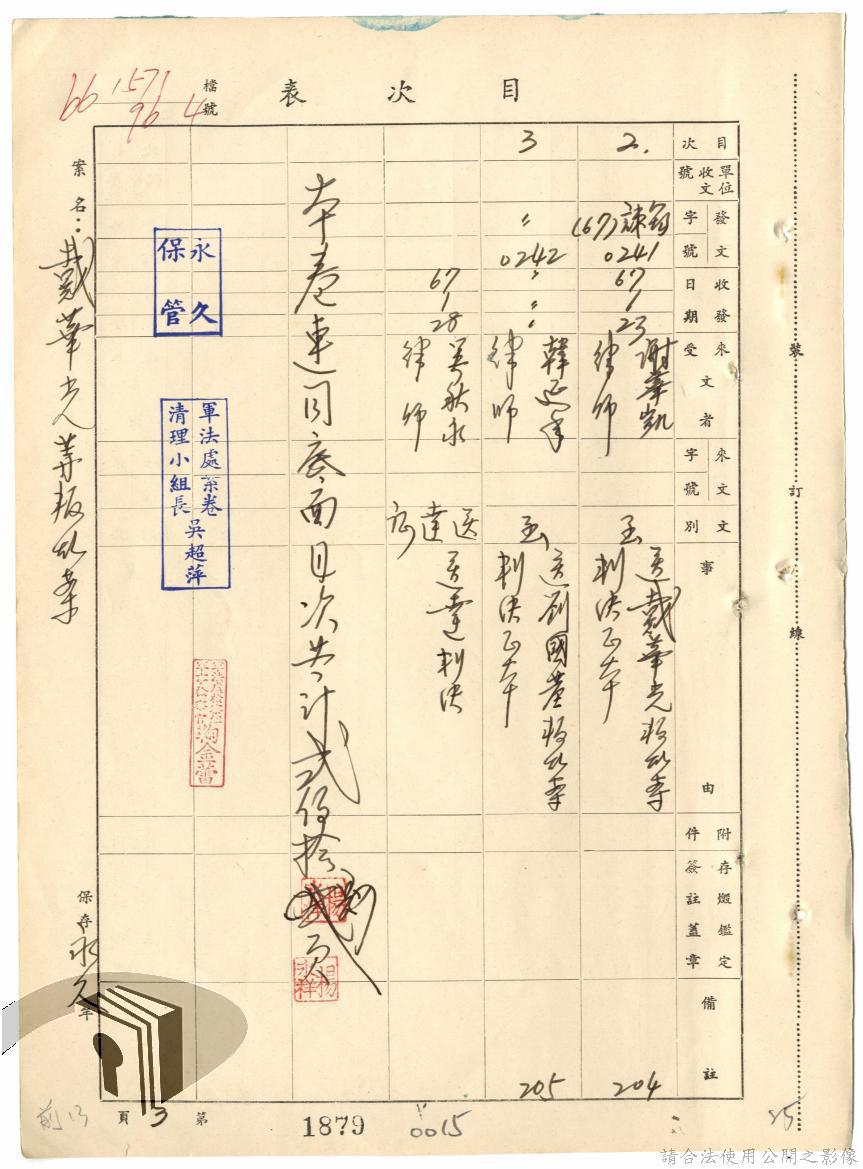 目次表
檔號
66 1571
96 4
案名：戴華光等叛亂案
目次
單位收文號
發文字號
收發日期
來文受文者
來文字號
文別
事由
附件
存燬鑑定簽註蓋章
備註
2.
(67)諫
0241
67
1
23
謝華凱律師
函
送戴華光叛亂案
判決正本
204
3
〃
0242
〃
〃
〃
律師
函
送劉國基叛亂案
判決正本
205
67
1
28
吳秋永律師
送達
送達判決
本卷連同底面目次共計貳佰拾
頁
楊
楊永祥
永久保管
軍法處案卷
清理小組長吳超萍
保存永久年
第3頁
1879
0015
25
裝訂線
請合法使用公開之影像